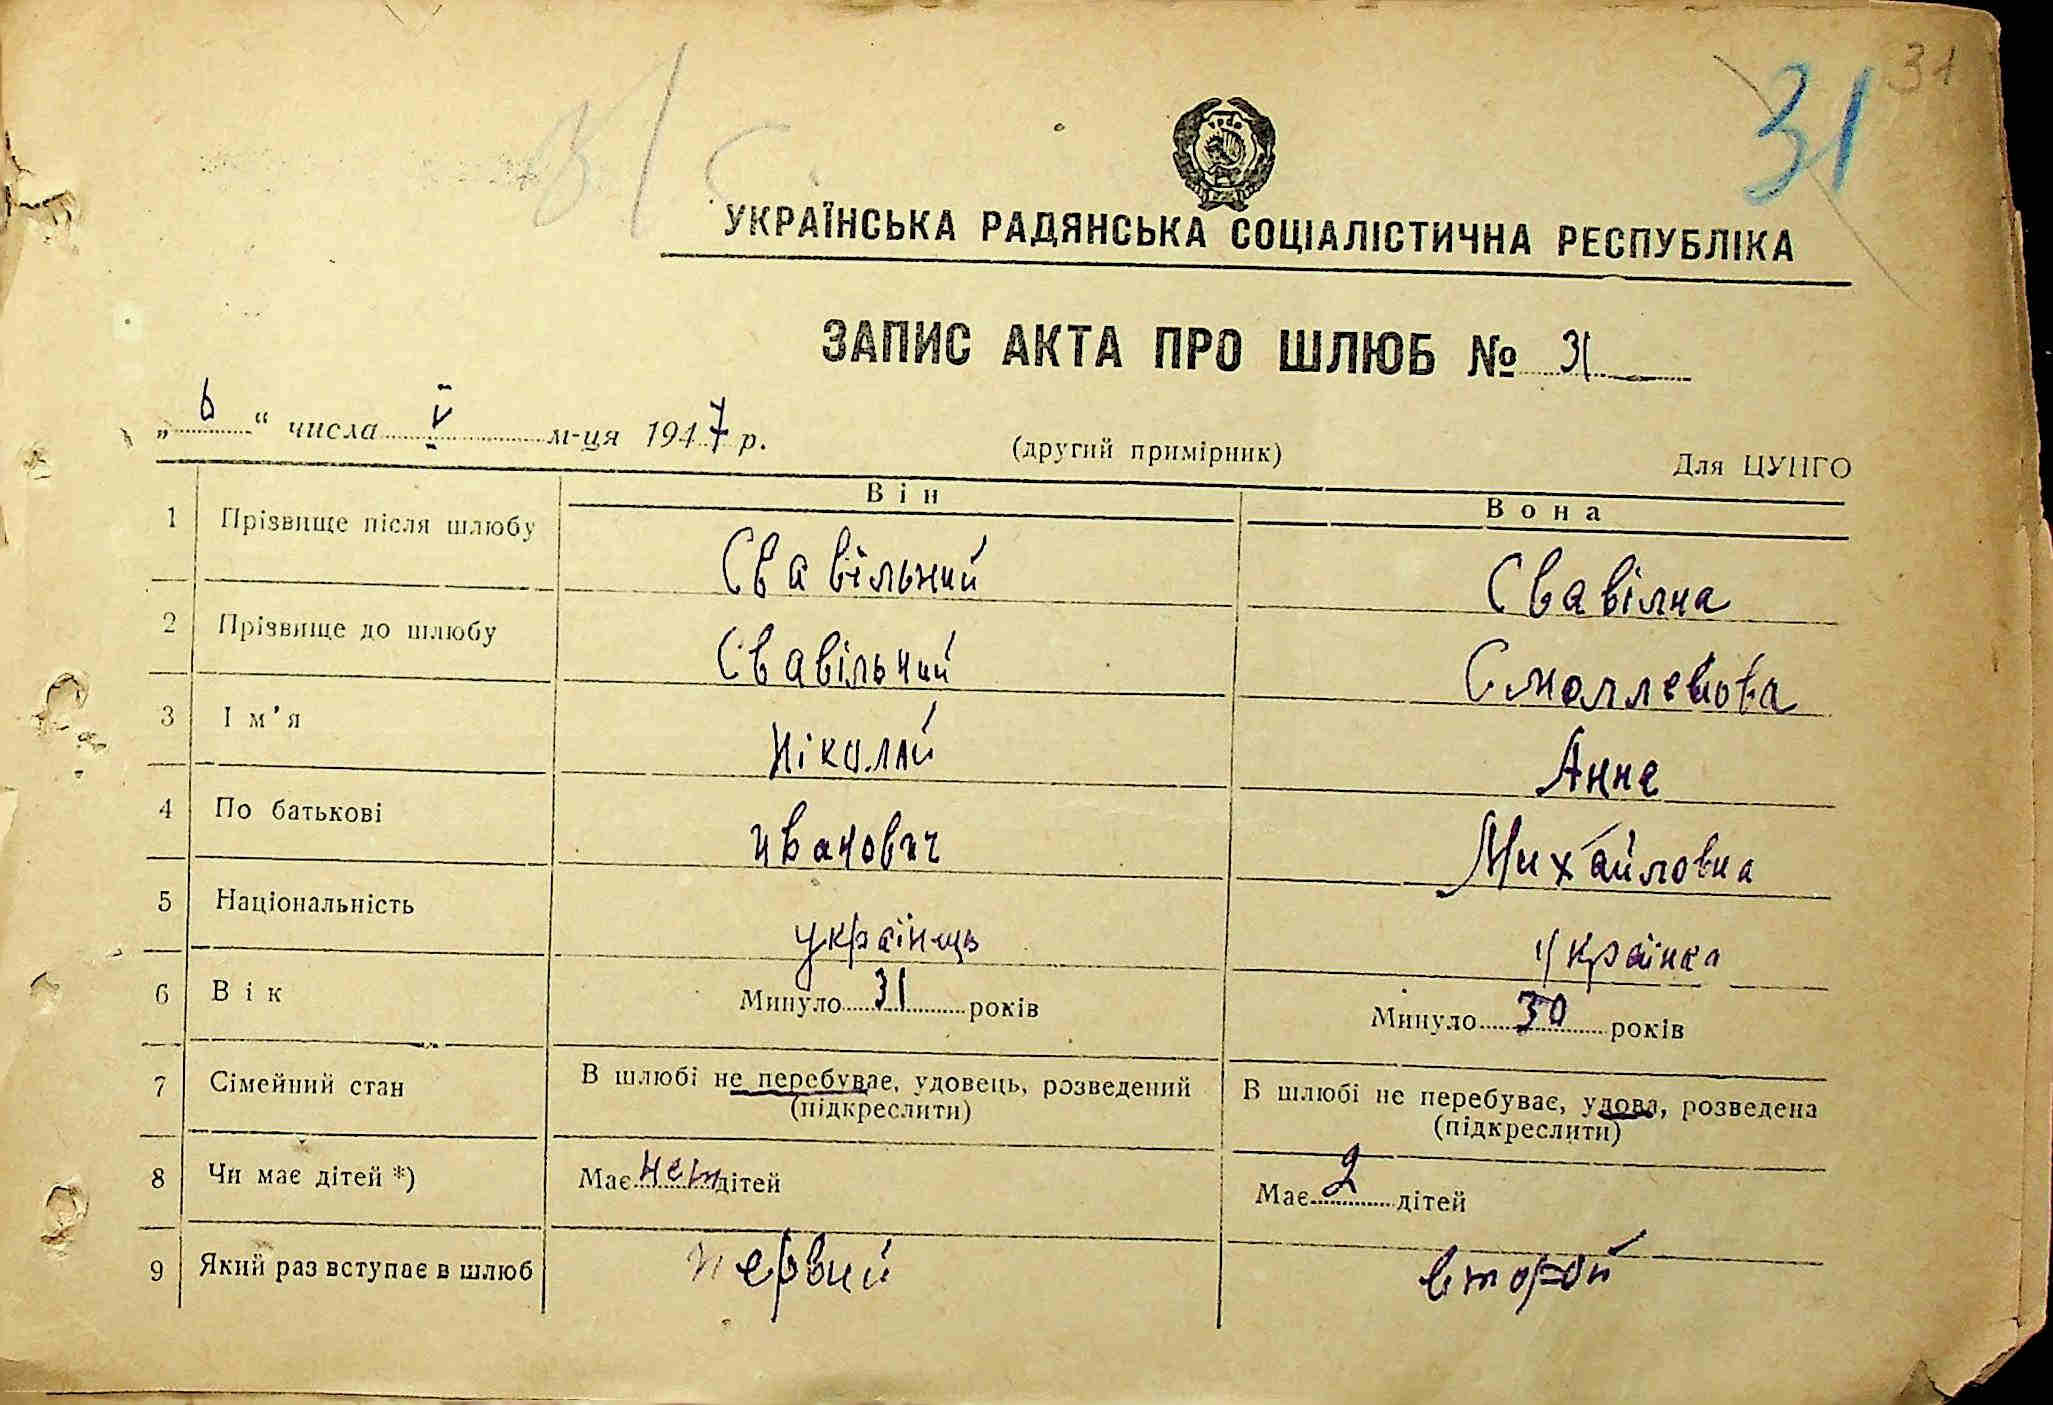 31
31
31
УКРАЇНСЬКА РАДЯНСЬКА СОЦІАЛІСТИЧНА РЕСПУБЛІКА
ЗАПИС АКТА ПРО ШЛЮБ № 31
„ 6 “ числа V м-ця 1947 р.
(другий примірник)
Для ЦУНГО
Він Вона
1 Прізвище після шлюбу Свавільний Свавілна
2 Прізвище до шлюбу Свавільний
3 Ім’я Ніколай Анна
4 По батькові Иванович Михайловна
5 Національність українець українка
6 Вік Минуло 31 років Минуло 30 років
7 Сімейний стан В шлюбі не перебуває, удовець, розведений В шлюбі не перебуває, удова, розведена
(підкреслити) (підкреслити)
8 Чи має дітей *) Має нет дітей Має 2 дітей
9 Який раз вступає в шлюб первий второй